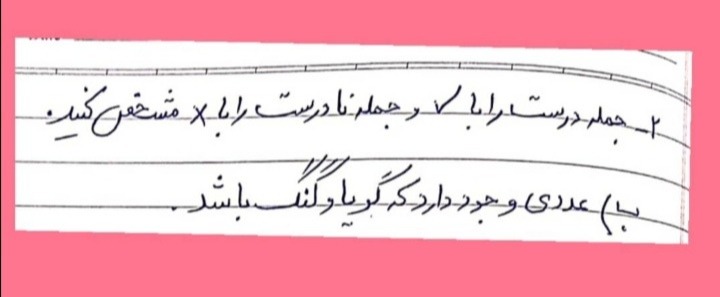 ۲- جمله درست را با ✓ و جمله نادرست را با × مشخص کنید.
ب) عددی وجود دارد که گویا و گنگ باشد.